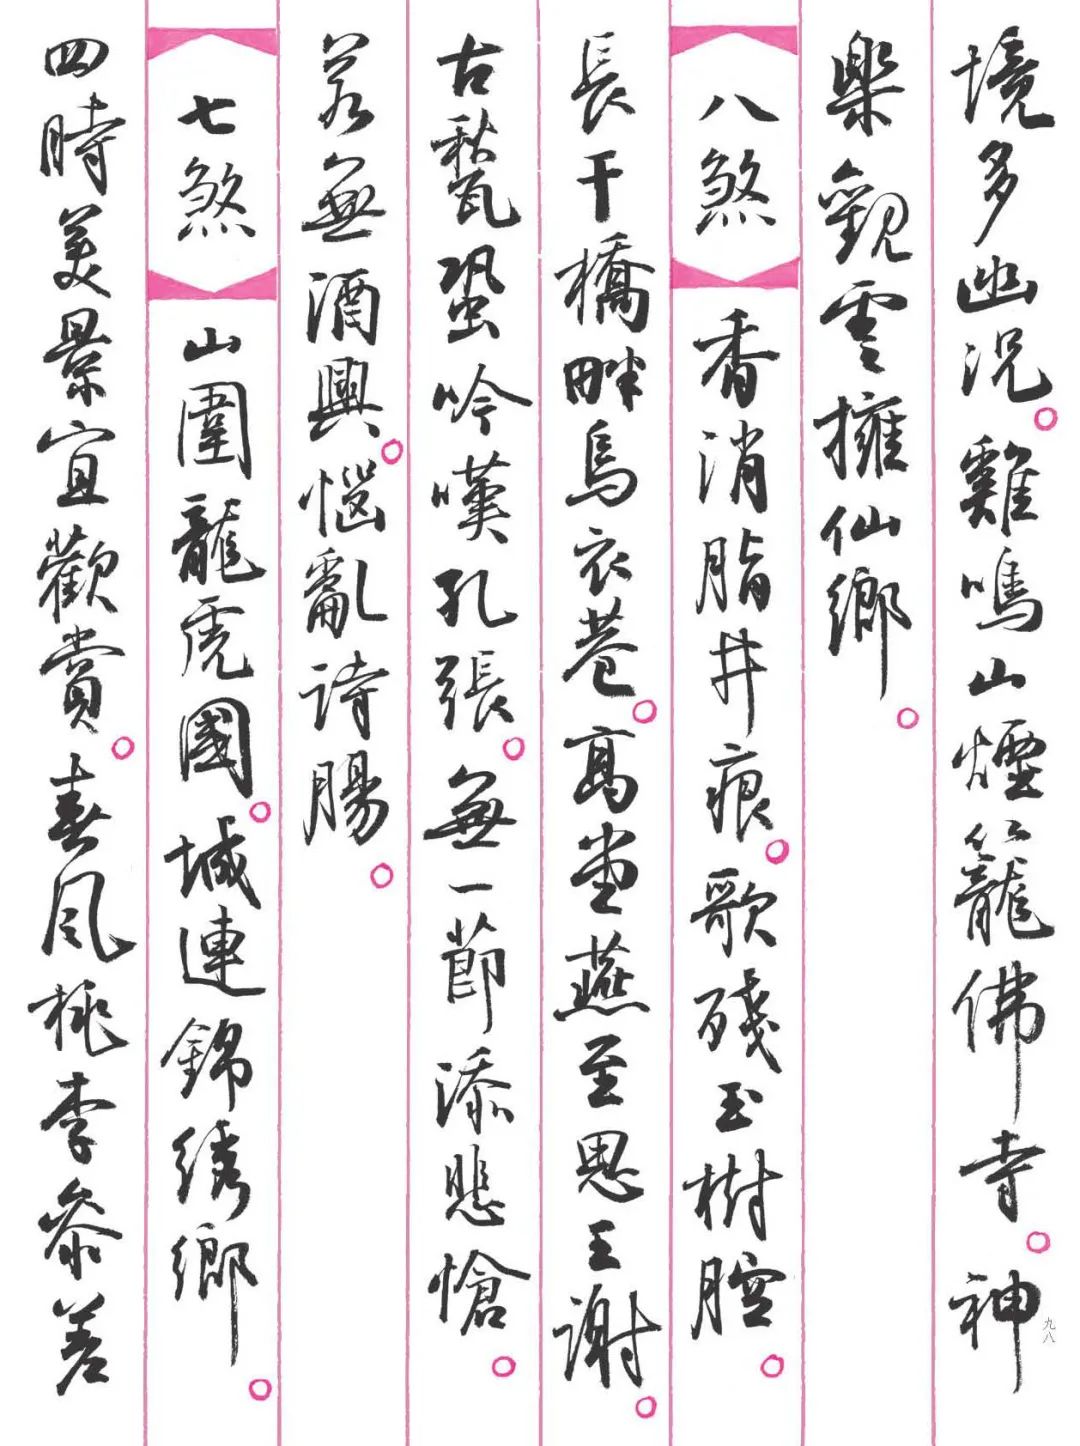 境多幽況。雞鳴山煙籠佛寺。神
樂觀雲擁仙鄉。
八煞 香消脂井痕。歌殘玉樹腔。
長干橋畔烏衣巷。高堂燕至思王謝。
古秋甃蛩吟嘆孔張。無一節添悲愴。
若無酒興。惱亂詩腸。
七煞 山圍龍虎國。城連錦綉鄉。
四時美景宜歡賞。春風桃李參差
九八